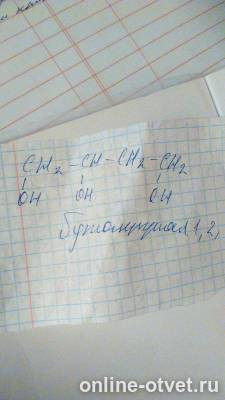 CH₂ - CH - CH₂ - CH₂
OH OH OH
Бутантриол 1,2,
online-otvet.ru